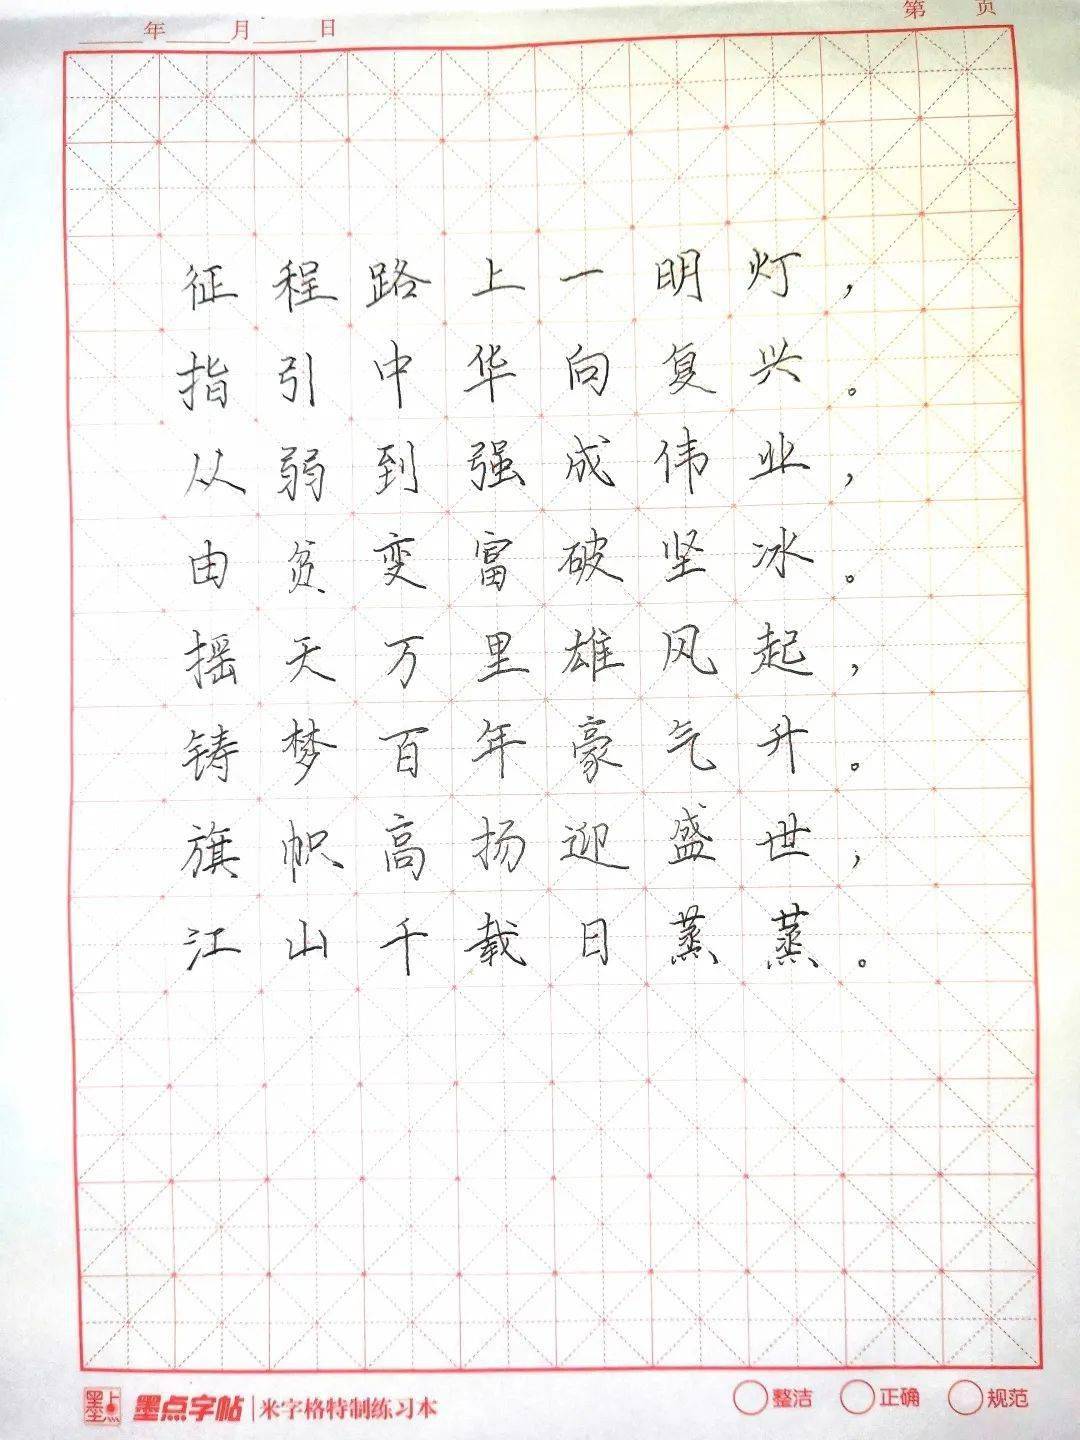 年 月 日
第 页
征程路上一明灯，
指引中华向复兴。
从弱到强成伟业，
由贫变富破坚冰。
摇天万里雄风起，
铸梦百年豪气升。
旗帜高扬迎盛世，
江山千载日蒸蒸。
墨点字帖 米字格特制练习本
整洁 正确 规范